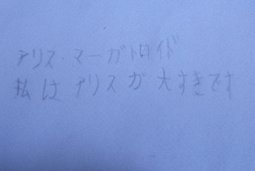 アリス・マーガトロイド
私はアリスが大すきです